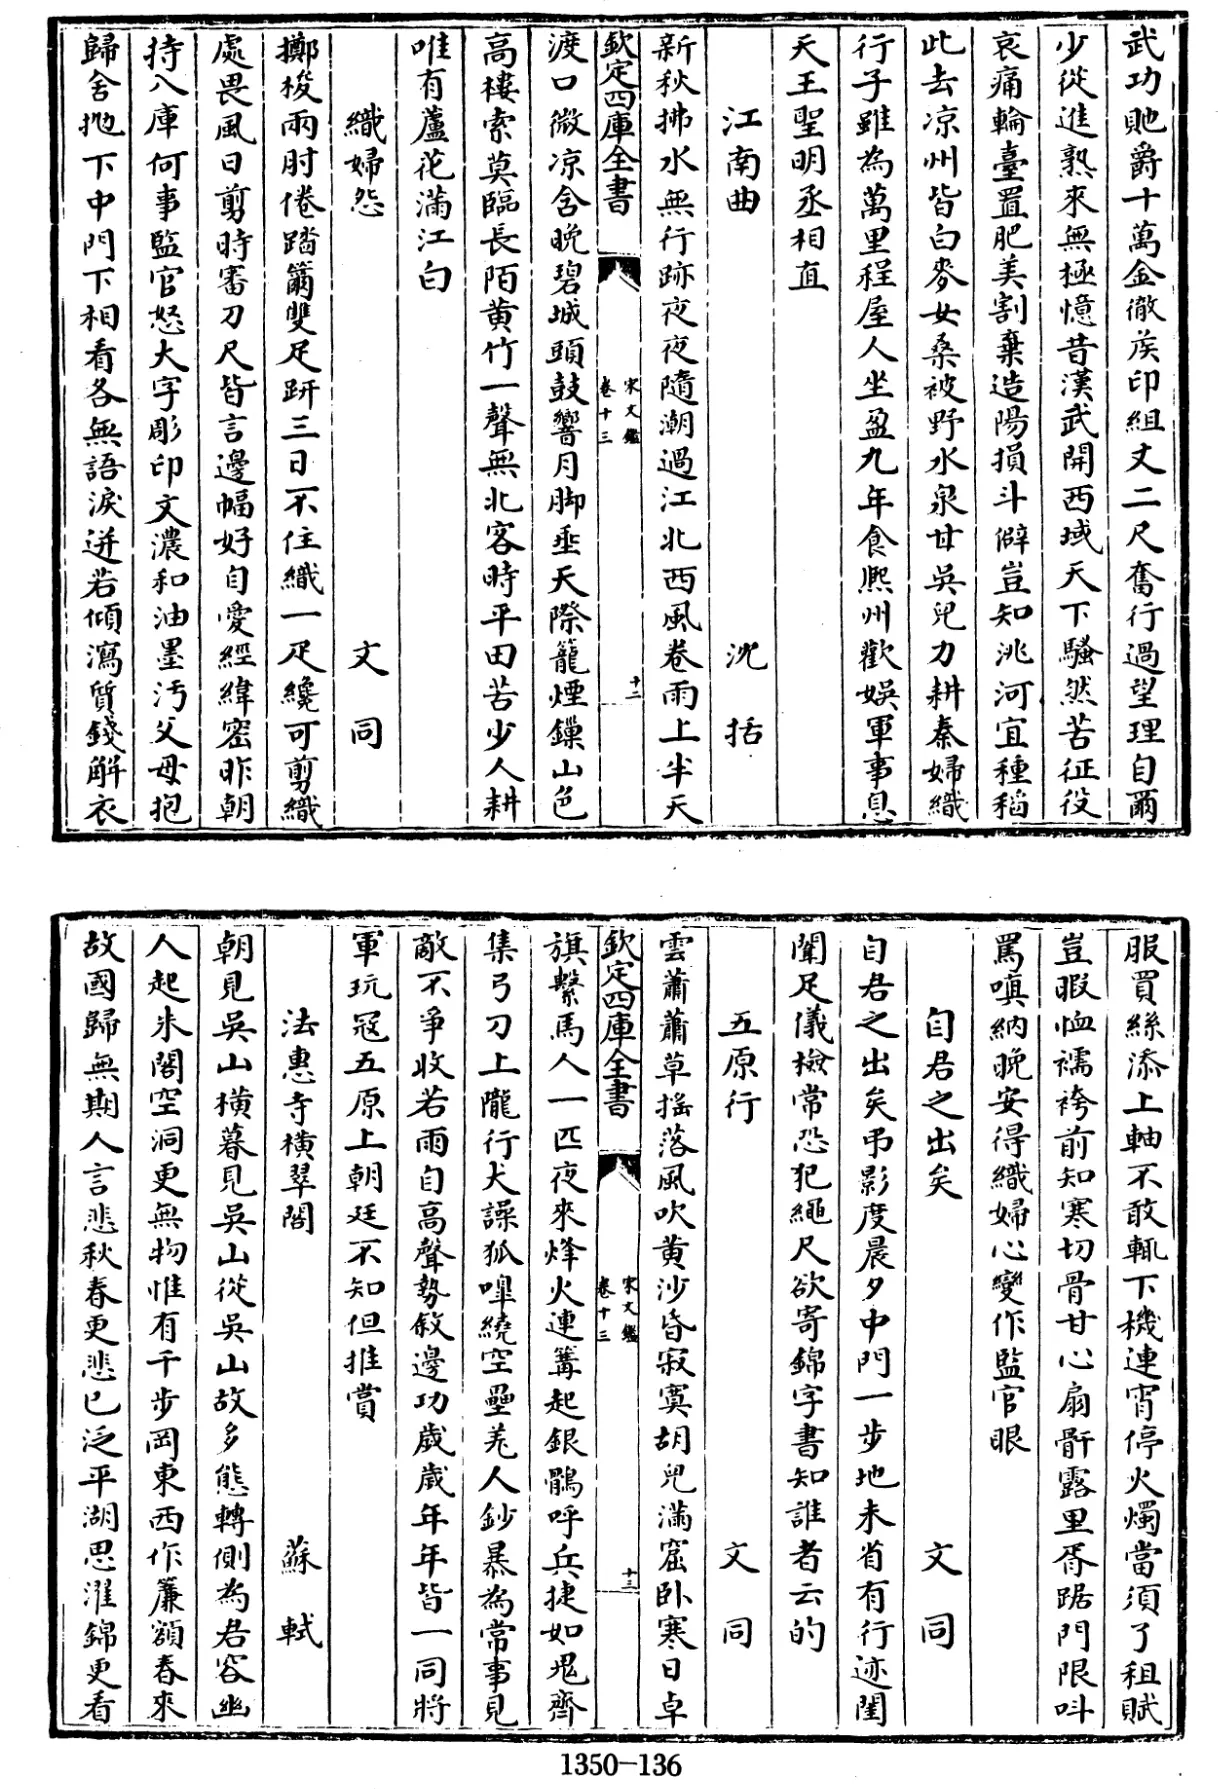 武功貤爵十萬金徹侯印組丈二尺奮行過望理自爾
少從進熟來無極憶昔漢武開西域天下騷然苦征役
哀痛輪臺置肥美割棄造陽損斗僻豈知洮河宜種稻
此去凉州皆白麥女桑被野水泉甘吳兒力耕秦婦織
行子雖為萬里程屋人坐盈九年食熈州歡娛軍事息
天王聖明丞相直
江南曲 沈括
新秋拂水無行跡夜夜隨潮過江北西風卷雨上半天
欽定四庫全書
宋文鑑
卷十三
十二
渡口微凉含晚碧城頭鼓響月脚垂天際籠煙鏁山色
高樓索莫臨長陌黄竹一聲無北客時平田苦少人耕
唯有蘆花滿江白
織婦怨 文同
擲梭兩肘倦踏籋雙足趼三日不住織一疋纔可剪織
處畏風日剪時審刀尺皆言邊幅好自愛經緯密昨朝
持入庫何事監官怒大字彫印文濃和油墨汚父母抱
歸舍抛下中門下相看各無語淚迸若傾瀉質錢解衣
服買絲添上軸不敢輒下機連宵停火燭當須了租賦
豈暇恤襦袴前知寒切骨甘心扇骭露里胥踞門限呌
罵嗔納晚安得織婦心變作監官眼
自君之出矣 文同
自君之出矣弔影度晨夕中門一步地未省有行迹閨
闈足儀檢常恐犯繩尺欲寄錦字書知誰者云的
五原行 文同
雲蕭蕭草搖落風吹黄沙昏寂寞胡兒滿窟卧寒日卓
欽定四庫全書
宋文鑑
卷十三
十三
旗繫馬人一匹夜來烽火連篝起銀鶻呼兵捷如鬼齊
集弓刀上隴行犬譟狐嘷繞空壘羌人鈔暴為常事見
敵不爭收若雨自高聲勢敘邊功歲歲年年皆一同將
軍玩冦五原上朝廷不知但推賞
法惠寺橫翠閣 蘇軾
朝見吳山橫暮見吳山從吳山故多態轉側為君容幽
人起朱閣空洞更無物惟有千步岡東西作簾額春來
故國歸無期人言悲秋春更悲已泛平湖思濯錦更看
1350-136